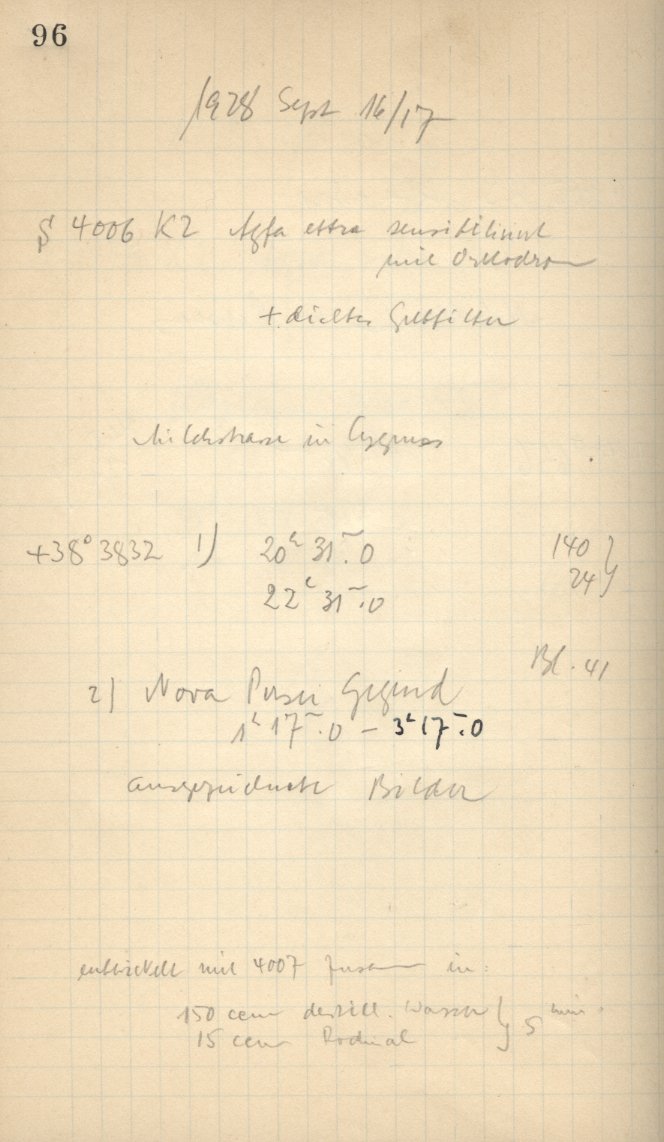 96
1928 Sept 16/17
4006 K2 Agfa extra sensibilisiert
mit
+ dichtes Gelbfilter
Milchstrasse in Cygnus
+38° 3832 1) 20h 31m.0 140 }
22h 31m.0 24 }
Bl. 41
2) Nova Persei Gegend
1h 17m.0 – 3h 17m.0
ausgezeichnete Bilder
entwickelt mit 4007 zusammen in:
150 ccm destill. Wasser } 5 min.
15 ccm Rodinal